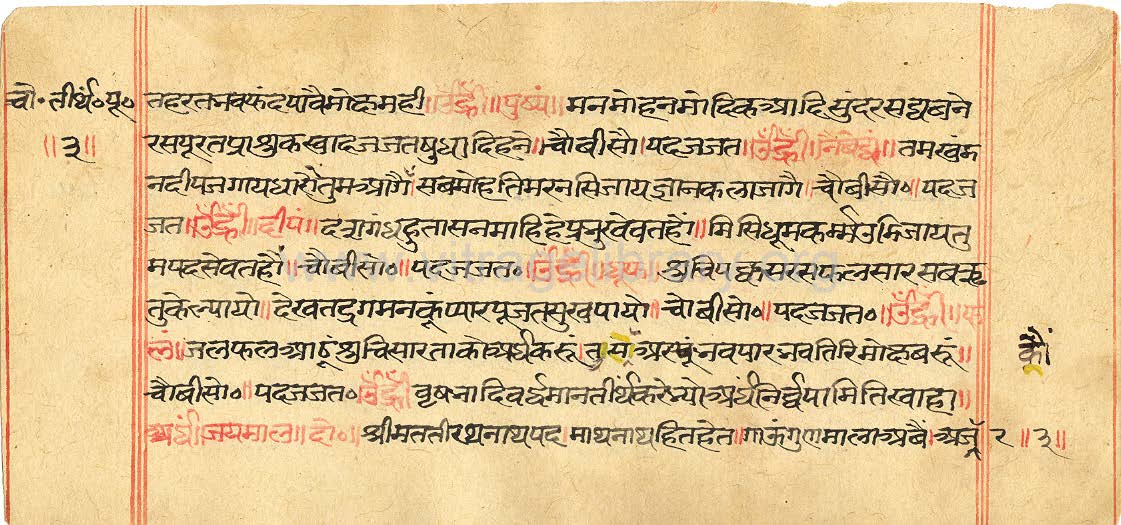 चौ॰ तीर्थ॰ पू॰
॥३॥
तहरतभवफंदपावैमोक्षमही॥उँह्रीँ॥पुष्पं॥मनमोहनमोदिकआदिसुंदरसद्यबने
रसपूरतप्राशुकस्वादजजतषुधादिहने॥चौबीसौ॥पदजजत॥उँह्रीँ॥नैवेद्यं॥तमखंड
नदीपजगायधारौंतुमआगैँसबमोहतिमरनसिजायज्ञानकलाजागै॥चौबीसौ॰॥पदज
जत॥उँह्रीँ॥दीपं॥दशगंधहुतासनमाहिहेप्रभुखेवतहौं॥मिसिधूमकर्म्मउडिजायतु
मपदसेवतहौं॥चौबीसो॰॥पदजजत॰॥उँह्रीँ॥धूपं॥शुचिपक्वसरसफलसारसबऋ
तुकेल्यायो॥देखतदृगमनकूंप्यारपूजतसुखपायो॥चौबीसो॰॥पदजजत॰॥उँह्रीँ॥फ
लं॥जलफलआठूंशुचिसारताकोअर्घकरूं॥तु
नवपारभवतिरिमोक्षबरूं॥
कौं
चौबीसो॰॥पदजजत॰॥उँह्रीँवृषभादिवर्द्धमानतीर्थकरेभ्योअर्घंनिर्व्वपामितिस्वाहा॥
अर्घं॥जयमाल॥दो॰॥श्रीमततीरथनाथपद।माथनाथहितहेत॥गाऊंगुणमालाअबैं।अजर ॥३॥
www.vitragalibrary.org